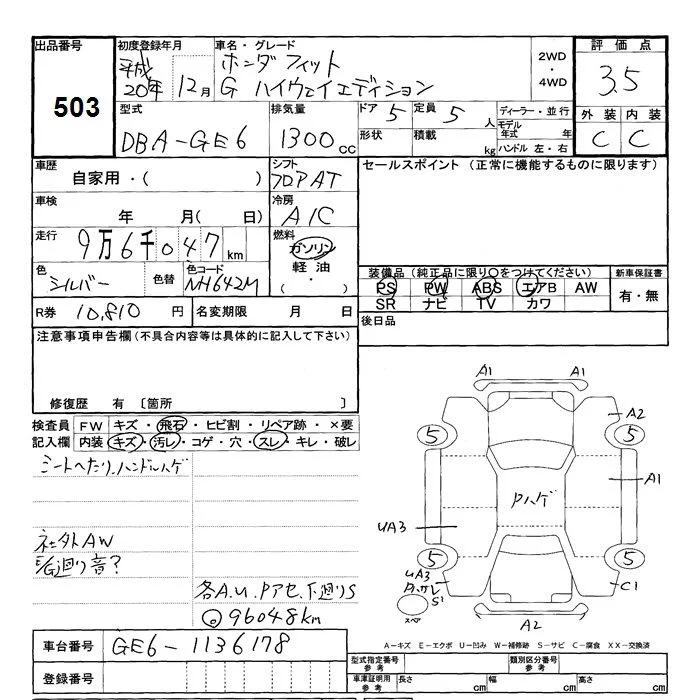 出品番号
503
初度登録年月
平成
20年 12月
車名・グレード
ホンダ フィット
G ハイウェイエディション
2WD
・
4WD
評価点
3.5
外装 内装
C C
型式
DBA-GE6
排気量
1300cc
ドア 5
定員 5人
形状
積載 kg
ディーラー・並行
モデル年式 年
ハンドル 左・右
車歴
自家用・( )
シフト
フロアAT
セールスポイント (正常に機能するものに限ります)
車検
年 月( 日)
冷房
A/C
走行
9万6千047km
燃料
ガソリン
軽油
( ・ )
色
シルバー
色替
色コード
NH642M
装備品 (純正品に限り○をつけてください)
PS PW ABS エアB AW
SR ナビ TV カワ
新車保証書
有・無
R券 10,810円
名変期限 月 日
後日品
注意事項申告欄(不具合内容等は具体的に記入して下さい)
修復歴 有 〔箇所 〕
検査員記入欄
FW キズ・飛石・ヒビ割・リペア跡・×要
内装 キズ・汚レ・コゲ・穴・スレ・キレ・破レ
シートへたり、ハンドルハゲ
社外AW
E/G廻り音?
各A.U.Pアセ、下廻りS
◎96048km
A1 A1
A2
5 5
A1
Pハゲ
UA3
5 5
UA3
C1
S1
スペア
A2
A-キズ E-エクボ U-凹み W-補修跡 S-サビ C-腐食 XX-交換済
車台番号
GE6-1136178
登録番号
型式指定番号
参考
類別区分番号
参考
車庫証明用
参考
長さ cm 幅 cm 高さ cm